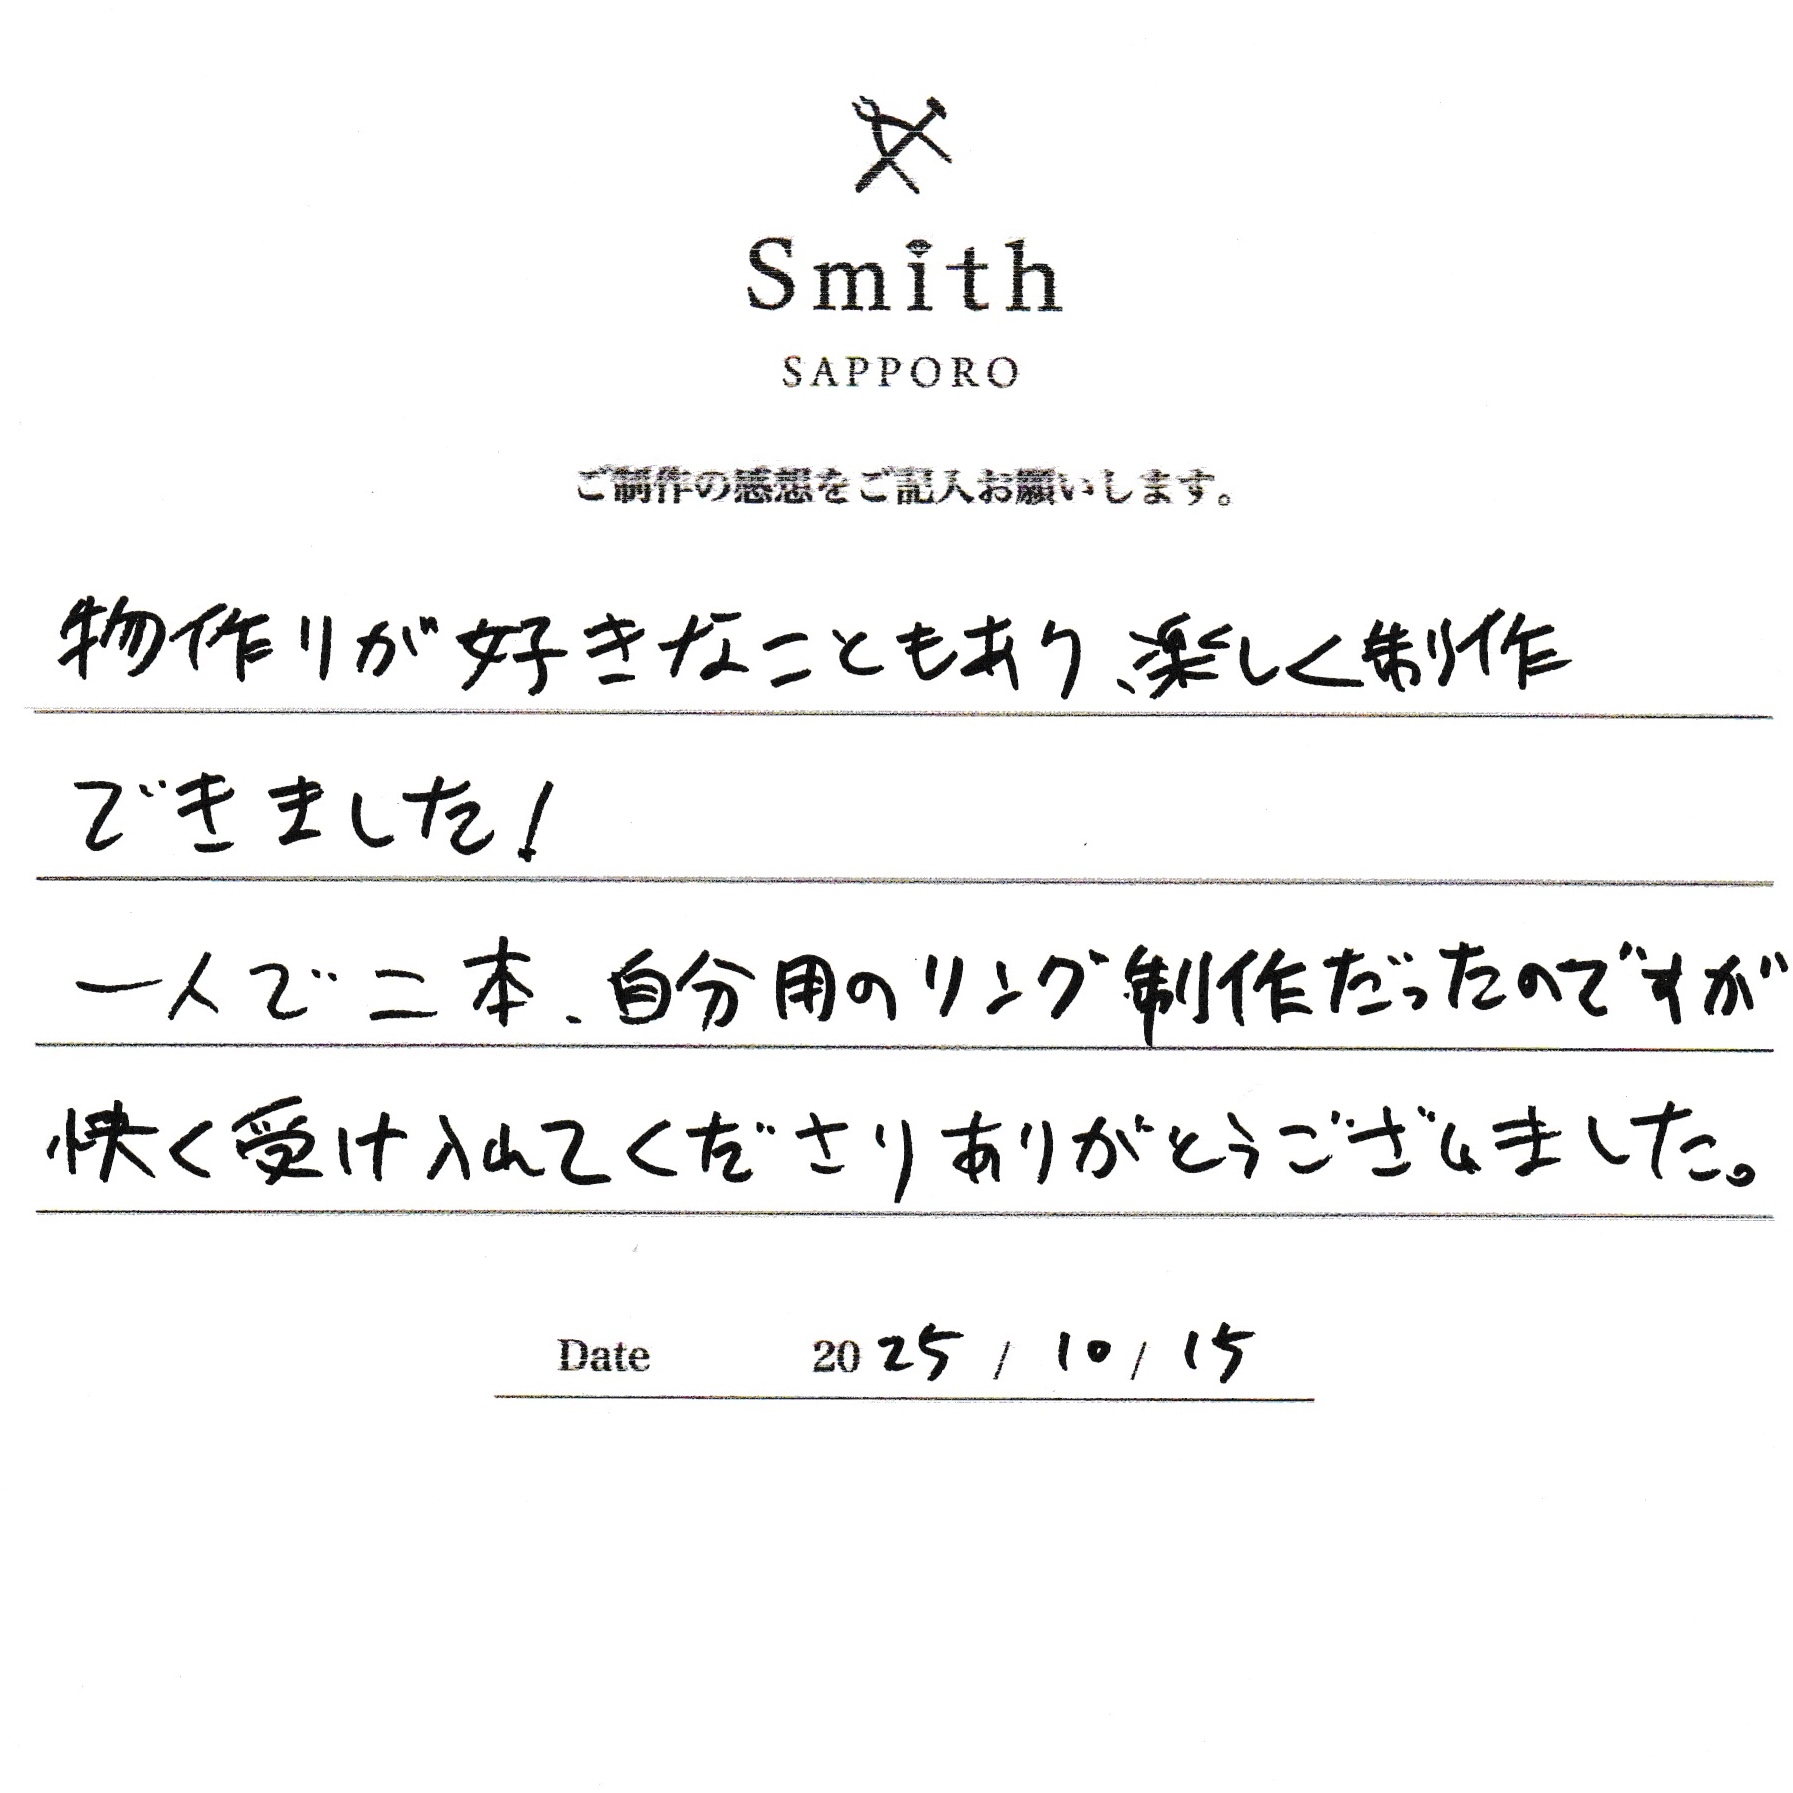 Smith
SAPPORO
ご制作の感想をご記入お願いします。
物作りが好きなこともあり、楽しく制作
できました!
一人で二本、自分用のリング制作だったのですが
快く受け入れてくださりありがとうございました。
Date 2025 / 10 / 15